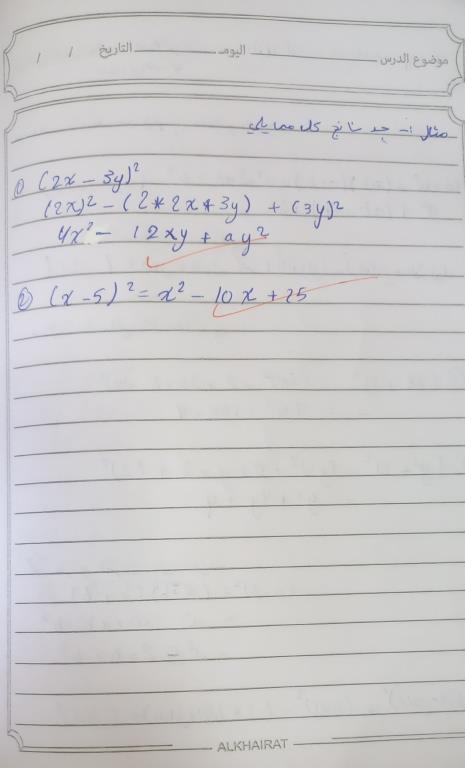 موضوع الدرس اليوم التاريخ / /
مثال :- جد ناتج كل مما يلي
① (2x - 3y)²
(2x)² - (2*2x*3y) + (3y)²
4x² - 12xy + 9y²
② (x - 5)² = x² - 10x + 25
ALKHAIRAT